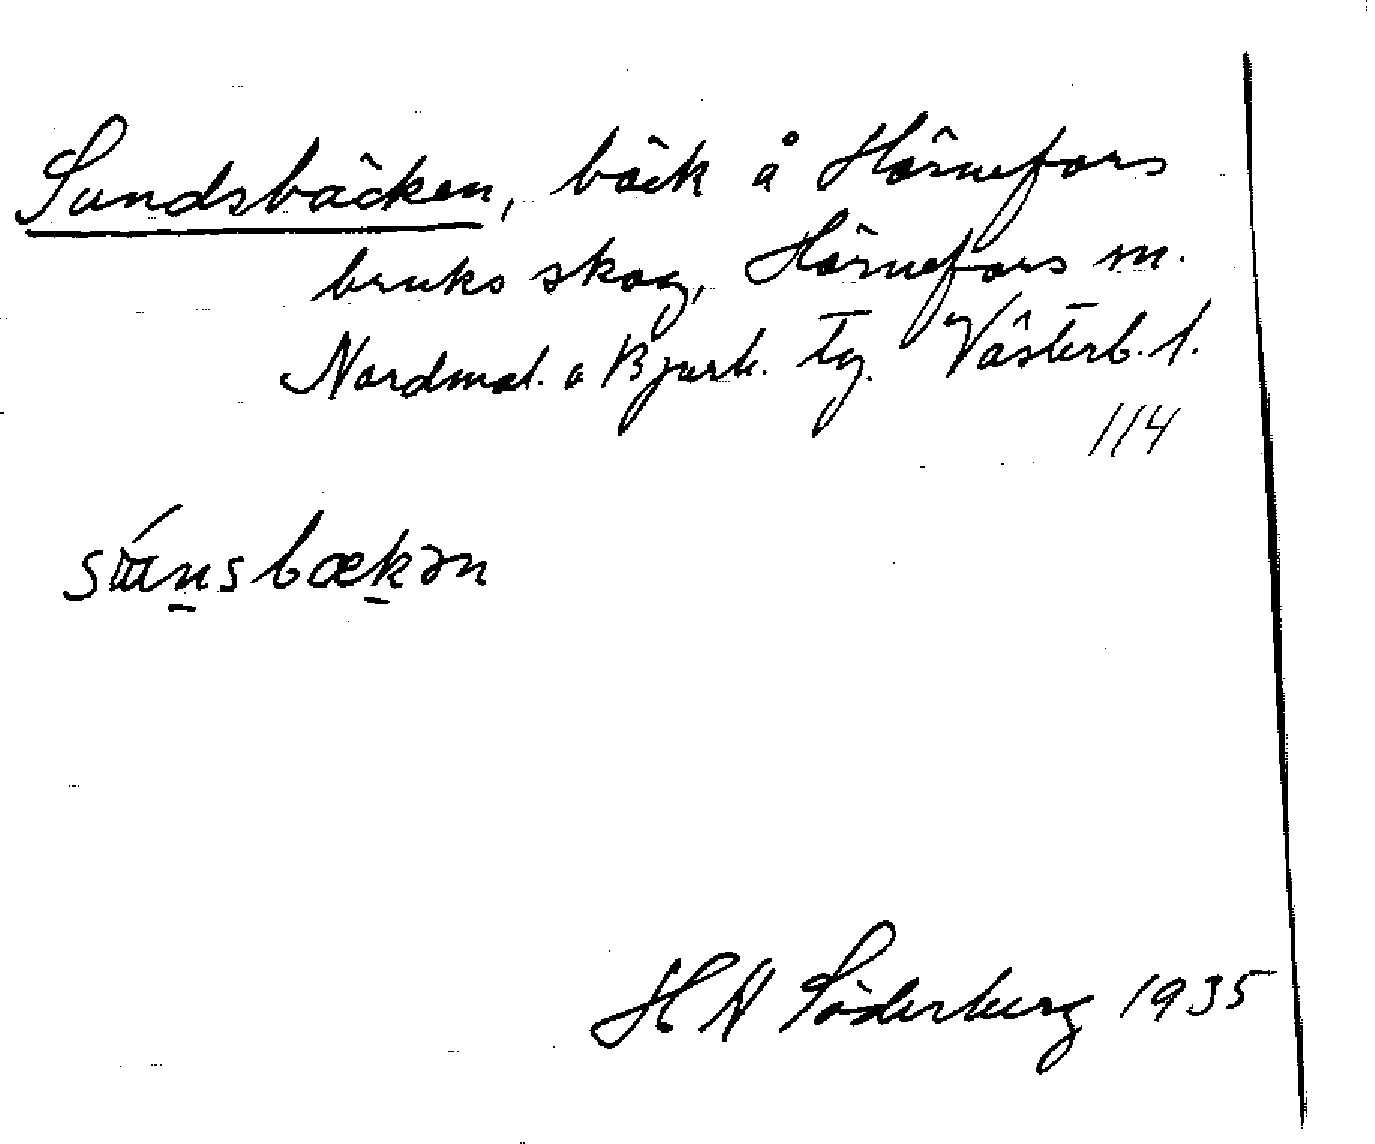 Sundsbäcken, bäck å Hörnefors
bruks skog, Hörnefors m.
Nordmal. o Bjurh. Tg. Västerb. l.
114
H N Söderberg 1935